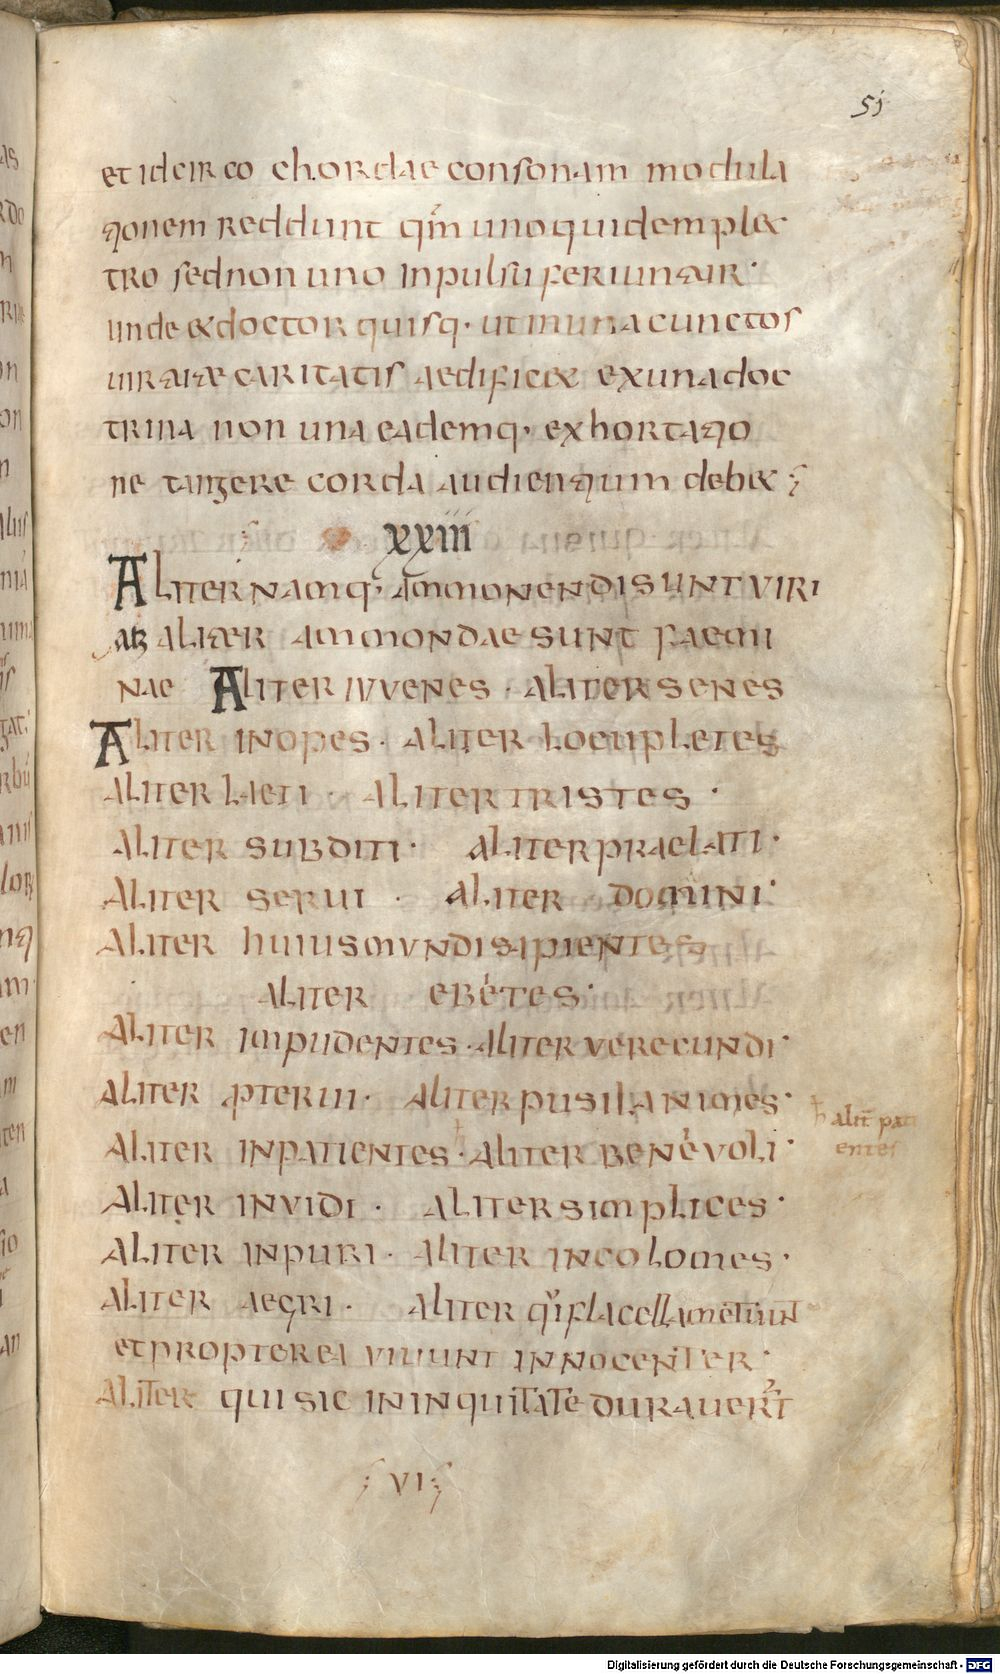 51
et idcirco chordae consonam modula
tionem reddunt qm̄ uno quidem plec
tro sed non uno inpulsu feriuntur·
unde & doctor quisq· ut in una cunctos
uirtute caritatis aedificet ex una doc
trina non una eademq· exhortatio
ne tangere corda audientium debet;
xxiii
ALITER NAMQ· AMMONENDI SUNT VIRI
atq ALITER AMMONDAE SUNT FAEMI
NAE ALITER IVVENES · ALITER SENES
ALITER INOPES · ALITER LOCUPLETES
ALITER LAETI · ALITER TRISTES ·
ALITER SUBDITI · ALITER PRAELATI ·
ALITER SERUI · ALITER DOMINI ·
ALITER HUIUS MVNDI SAPIENTES
ALITER EBETES ·
ALITER IMPUDENTES · ALITER VERECUNDI ·
ALITER PTERUI · ALITER PUSILANIMES ·
ħ alit̄ pati
entes
ALITER INPATIENTES · ALITER BENEVOLI ·
ALITER INVIDI · ALITER SIMPLICES ·
ALITER INPURI · ALITER INCOLOMES ·
ALITER AEGRI · ALITER qi flacella metuunt
ET PROPTEREA VIUUNT INNOCENTER ·
ALITER QUI SIC IN INQUITATE DURAUERT
; VI ;
Digitalisierung gefördert durch die Deutsche Forschungsgemeinschaft - DFG